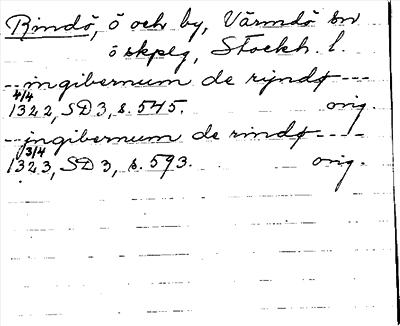 Rindö, ö och by, Värmdö sn
ö skplg, Stockh. l.
-- ingibernum de ryndø ---
4/4
1322, SD 3, s. 545. orig.
-- jngibernum de rindø ----
3/4
1323, SD 3, s. 593. orig.